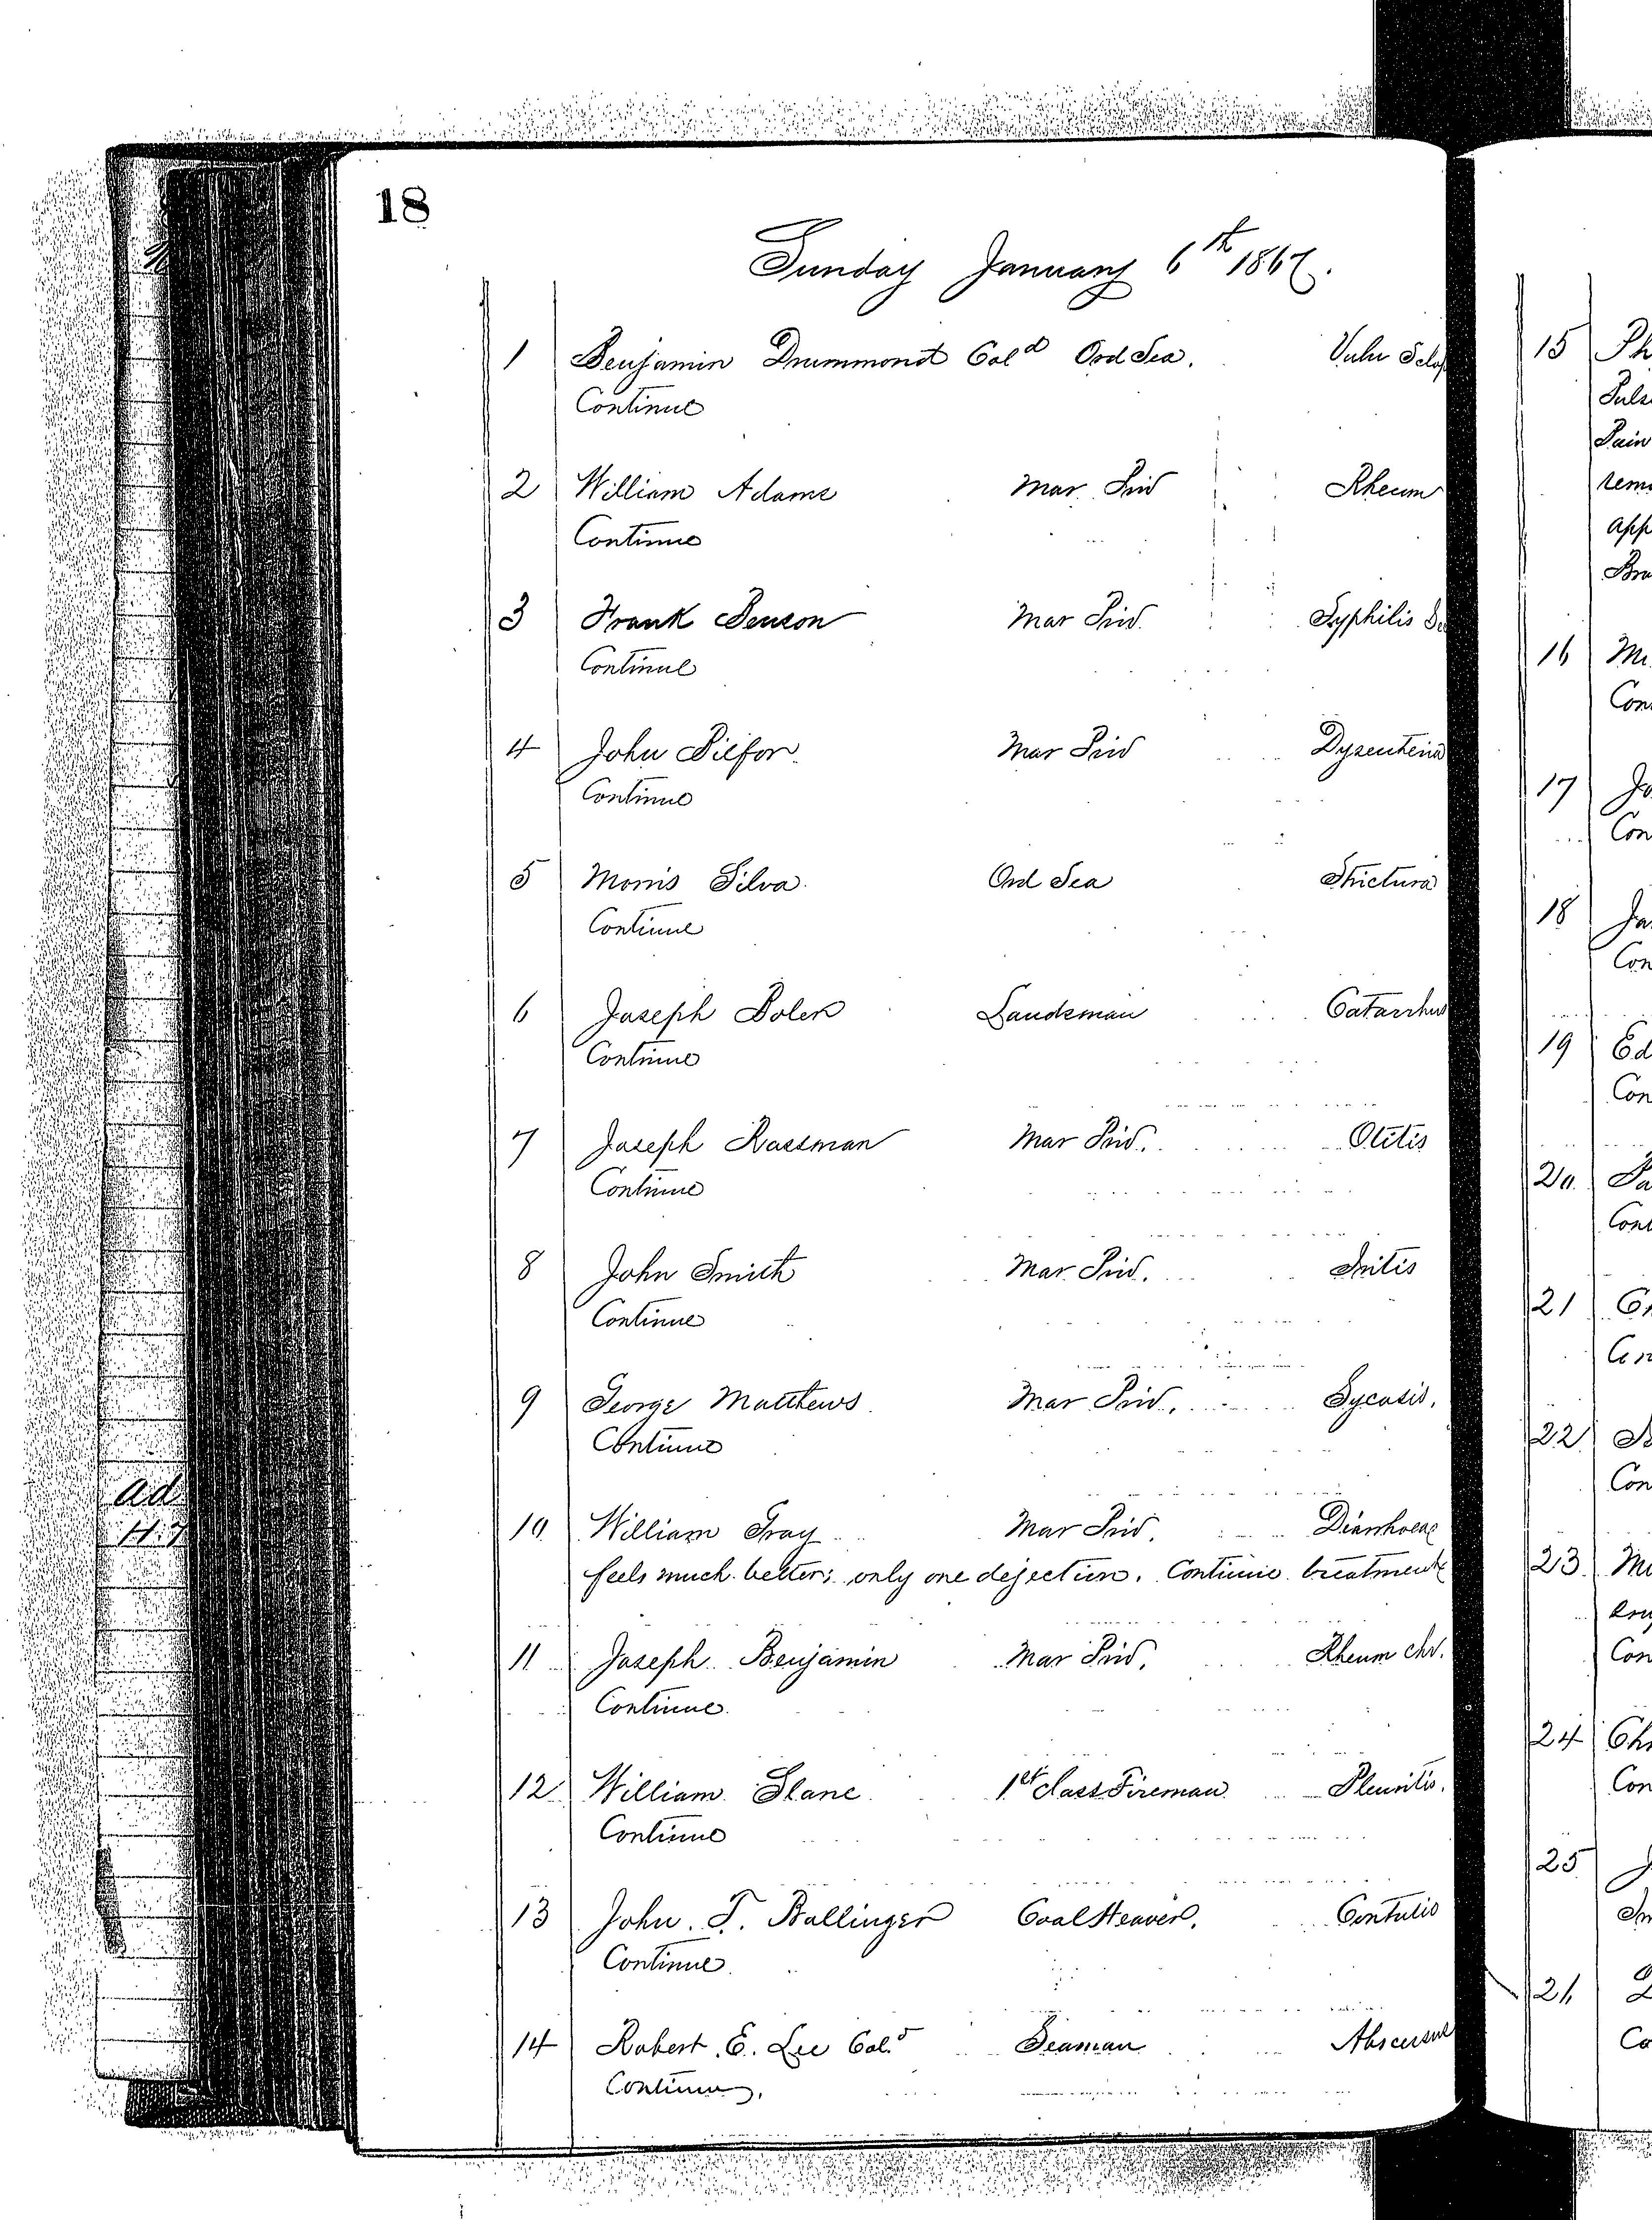 18
Sunday January 6th 1867.
1 Benjamin Drummond Cold Ord Sea. Vuln Sclop
Continue
2 William Adams Mar Priv Rheum
Continue
3 Frank Benson Mar Priv. Syphilis
Continue
4 John Pilfor Mar Priv Dysenteria
Continue
5 Morris Silva Ord Sea Strictura
Continue
6 Joseph Bolen Landsman Catarrhus
Continue
7 Joseph Rassman Mar Priv. Otitis
Continue
8 John Smith Mar Priv. Iritis
Continue
9 George Matthews Mar Priv. Sycosis.
Continue
10 William Gray Mar Priv. Diarrhoeae
feels much better; only one dejection. Continue treatment
11 Joseph Benjamin Mar Priv. Rheum chr.
Continue
12 William Slane 1st class Fireman Pleuritis.
Continue
13 John. T. Ballinger Coal Heaver. Contusio
Continue
14 Robert. E. Lee Cold Seaman Abscessus
Continue.
ad
15 Ph
Puls
Pain
rem
app
Bra
16
Con
17 Jo
Con
18 Ja
Con
19 Ed
Con
20
Con
21
22
Con
23
Con
24 Ch
Con
25
26
Co